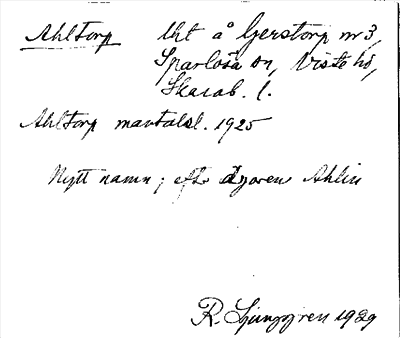 Ahltorp lht å Gerstorp nr 3,
Sparlösa sn, Viste hd,
Skarab. l.
Ahltorp mantalsl. 1925
Nytt namn; efter ägaren Ahlin
R. Ljunggren 1929